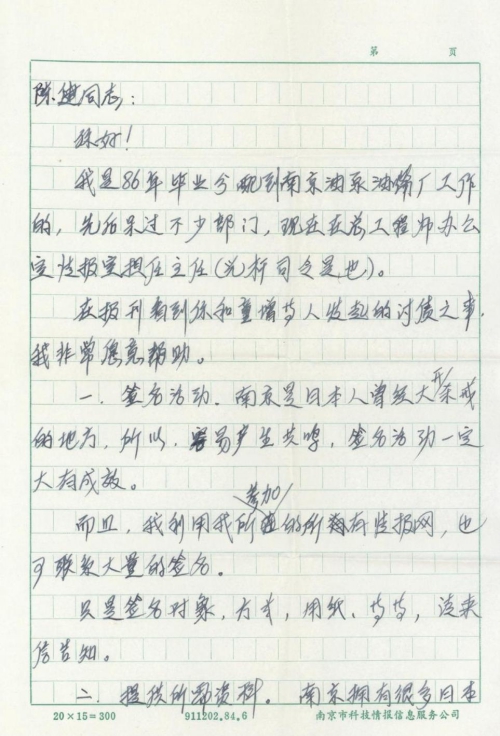 第 頁
陈健同志：
你好！
我是86年毕业分配到南京油泵油嘴厂工作
的，先后呆过不少部门，现在在总工程师办公
室情报室担任主任（光杆司令是也）。
在报刊看到你和童增等人发起的讨债之事，
我非常愿意帮助。
一．签名活动．南京是日本人曾经大开杀戒
的地方，所以，容易产生共鸣，签名活动一定
大有成效。
而且，我利用我所参加的所有情报网，也
可联系大量的签名．
只是签名对象，方式，用纸，等等，请来
信告知。
二．提供所需资料．南京拥有很多日本
20×15=300 911202.84.6 南京市科技情报信息服务公司